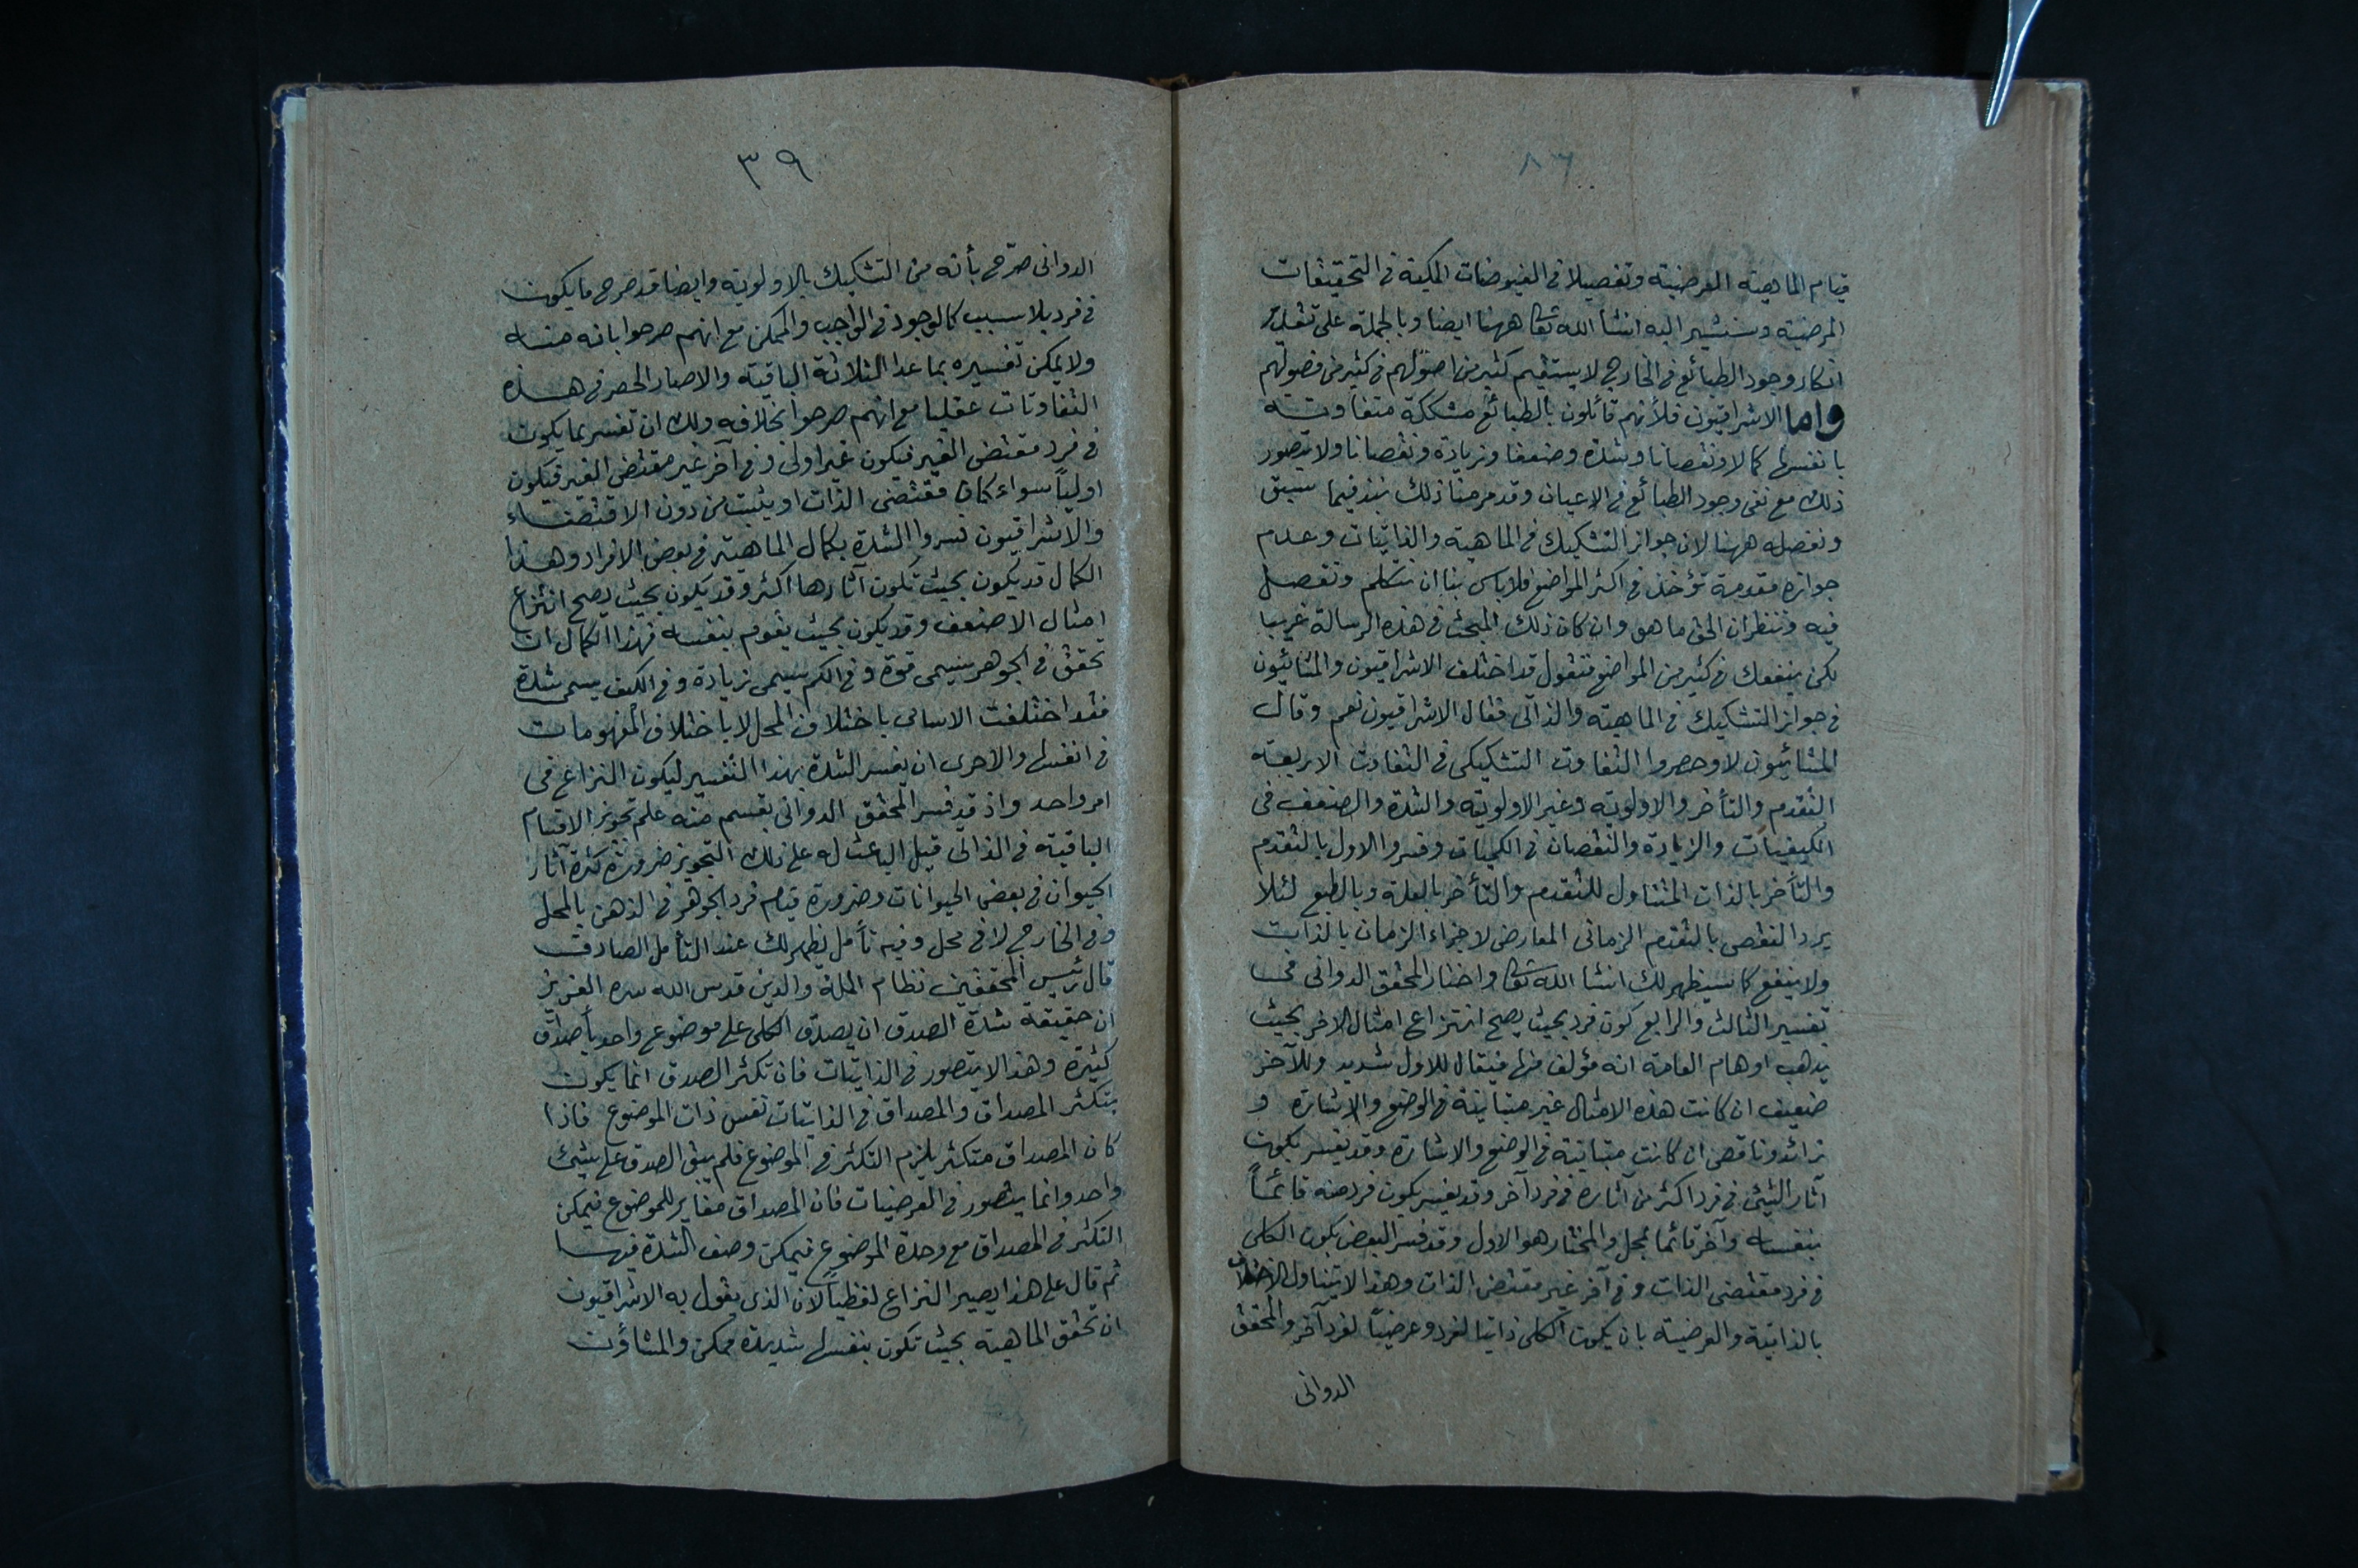 ٨٦
قيام الماهية العرضية وتفصيلا في الفيوضات المكية في التحقيقات
المرضية وسنشير اليه انشأ الله تعا ههنا ايضا وبالجملة على تقدير
انكار وجود الطبائع في الخارج لا يستقيم كثير من اصولهم في كثير من فصولهم
واما الاشراقيون فلأنهم قائلون بالطبائع مشككة متفاوتة
بانفسها كمالا ونقصانا وشدة وضعفا وزيادة ونقصانا ولا يتصور
ذلك مع نفى وجود الطبائع في الاعيان وقد مر منا ذلك نبذ فيما سبق
ونفصله ههنا لان جواز التشكيك في الماهية والذاتيات وعدم
جوازه مقدمة تؤخذ في اكثر المواضع فلا باس بنا ان نتكلم ونفصل
فيه وننظر ان الحق ما هو وان كان ذلك المبحث في هذه الرسالة غريبا
لكن ينفعك في كثير من المواضع فنقول قد اختلف الاشراقيون والمشائيون
في جواز التشكيك في الماهية والذاتى فقال الاشراقيون نعم وقال
المشائيون لا وحصروا التفاوت التشكيكى في التفاوت الاربعة
التقدم والتأخر والاولوية وغير الاولوية والشدة والضعف في
الكيفيات والزيادة والنقصان في الكميات وفسروا الاول بالتقدم
والتأخر بالذات المتناول للتقدم والتأخر بالعلة وبالطبع لئلا
يرد النقض بالتقدم الزمانى العارض لاجزاء الزمان بالذات
ولا ينفع كما سيظهر لك انشا الله تعا واختار المحقق الدوانى في
تفسير الثالث والرابع كون فرد بحيث يصح انتزاع امثال الآخر بحيث
يذهب اوهام العامة انه مؤلف منها فيقال للاول شديد وللآخر
ضعيف ان كانت هذه الامثال غير متباينة في الوضع والاشارة و
زائد وناقص ان كانت متباينة في الوضع والاشارة وقد يفسر بكون
آثار الشئ في فرد اكثر من آثاره في فرد آخر وقد يفسر بكون فرد منه قائماً
بنفسه وآخر قائما بمحل والمختار هو الاول وقد فسر البعض بكون الكلى
في فرد مقتضى الذات وفي آخر غير مقتضى الذات وهذا لا يتناول الاختلاف
بالذاتية والعرضية بان يكون الكلى ذاتيا لفرد وعرضياً لفرد آخر والمحقق
الدوانى
٣٩
الدوانى صرّح بأنه من التشكيك بالاولوية وايضا قد صرح ما يكون
في فرد بلا سبب كالوجود في الواجب والممكن مع انهم صرحوا بانه منه
ولا يمكن تفسيره بما عدا الثلاثة الباقية والا صار الحصر في هذه
التفاوتات عقليا مع انهم صرحوا بخلافه ولك ان تفسر بما يكون
في فرد مقتضى الغير فيكون غير اولى وفي آخر غير مقتضى الغير فيكون
اولياً سواء كان مقتضى الذات او يثبت من دون الاقتضاء
والاشراقيون فسروا الشدة بكمال الماهية في بعض الافراد وهذا
الكمال قد يكون بحيث تكون آثارها اكثر وقد يكون بحيث يصح انتزاع
امثال الاضعف وقد يكون بحيث يقوم بنفسه فهذا الكمال ان
تحقق في الجوهر يسمى قوة وفي الكم يسمى زيادة وفي الكيف يسمى شدة
فقد اختلفت الاسامى باختلاف المحل لا باختلاف المفهومات
في انفسها والاحرى ان يفسر الشدة بهذا التفسير ليكون النزاع في
امر واحد واذ قد فسر المحقق الدوانى بقسم منه علم تجويز الاقسام
الباقية في الذاتى قيل الباعث له على ذلك التجويز ضرورة كثرة آثار
الحيوان في بعض الحيوانات وضرورة قيام فرد الجوهر في الذهن بالمحل
وفي الخارج لا في محل وفيه تأمل يظهر لك عند التأمل الصادق
قال رئيس المحققين نظام الملة والدين قدس الله سره العزيز
ان حقيقة شدة الصدق ان يصدق الكلى على موضوع واحد بأصداق
كثيرة وهذا لا يتصور في الذاتيات فان تكثر الصدق انما يكون
بتكثر المصداق والمصداق في الذاتيات نفس ذات الموضوع فاذا
كان المصداق متكثر يلزم التكثر في الموضوع فلم يبق الصدق على شئ
واحد وانما يتصور في العرضيات فان المصداق مغاير للموضوع فيمكن
التكثر في المصداق مع وحدة الموضوع فيمكن وصف الشدة فيها
ثم قال على هذا يصير النزاع لفظياً لان الذى يقول به الاشراقيون
ان تحقق الماهية بحيث تكون بنفسها شديدة ممكن والمشاؤن